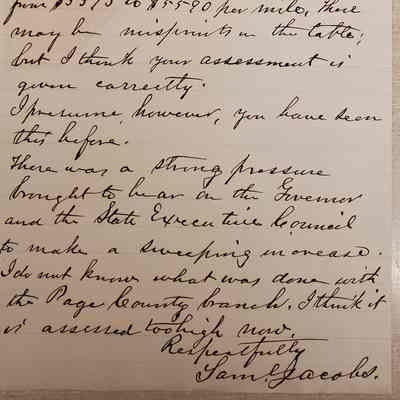 from $5375 to $5590 per mile, There
may be misprints in the table;
but I think your assessment is
given correctly.
I presume, however, you have seen
this before.
There was a strong pressure
brought to bear on the Governor
and the State Executive Council
to make a sweeping increase.
I do not know what was done with
the Page County branch. I think it
is assessed too high now.
Respectfully
Saml Jacobs.